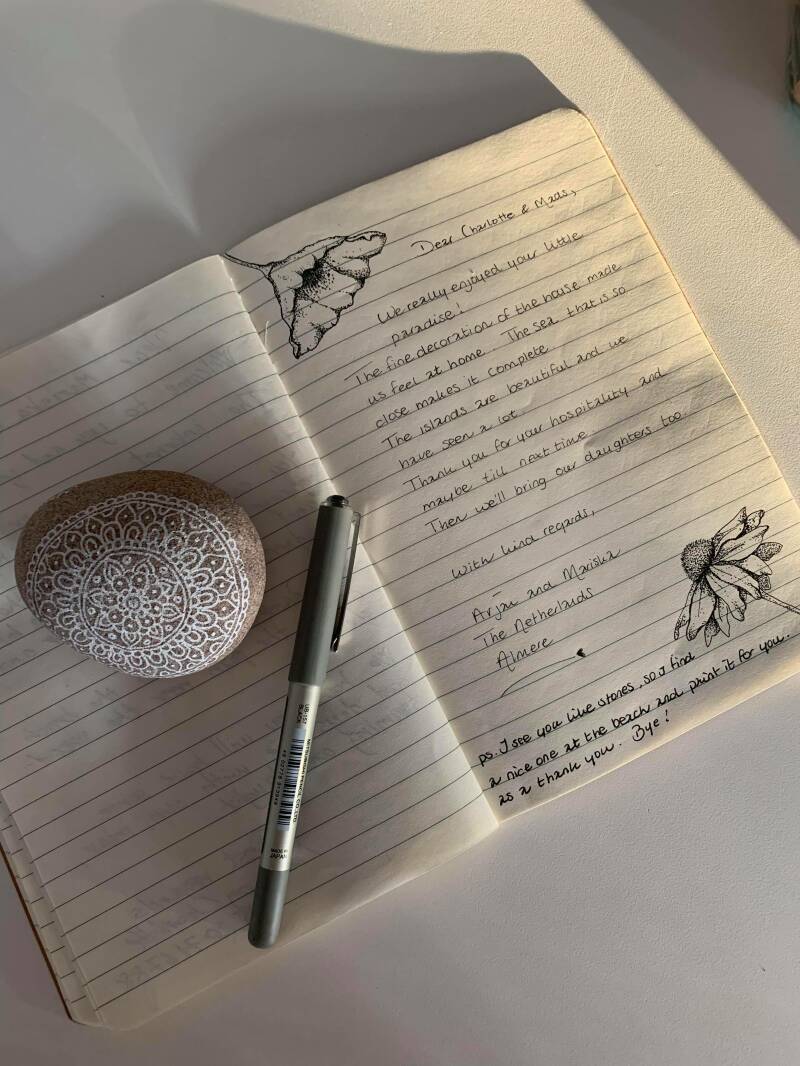 Dear Charlotte & Mads,
We really enjoyed your little
paradise!
The fine decoration of the house made
us feel at home. The sea that is so
close makes it complete
The islands are beautiful and we
have seen a lot.
Thank you for your hospitality and
maybe till next time.
Then we'll bring our daughters too.
With kind regards,
Arjan and Mariska
The Netherlands
Almere
ps. I see you like stones, so I find
a nice one at the beach and paint it for you.
as a thank you. Bye!
UB-157
BLACK
MITSUBISHI PENCIL CO., LTD.
MADE IN
JAPAN